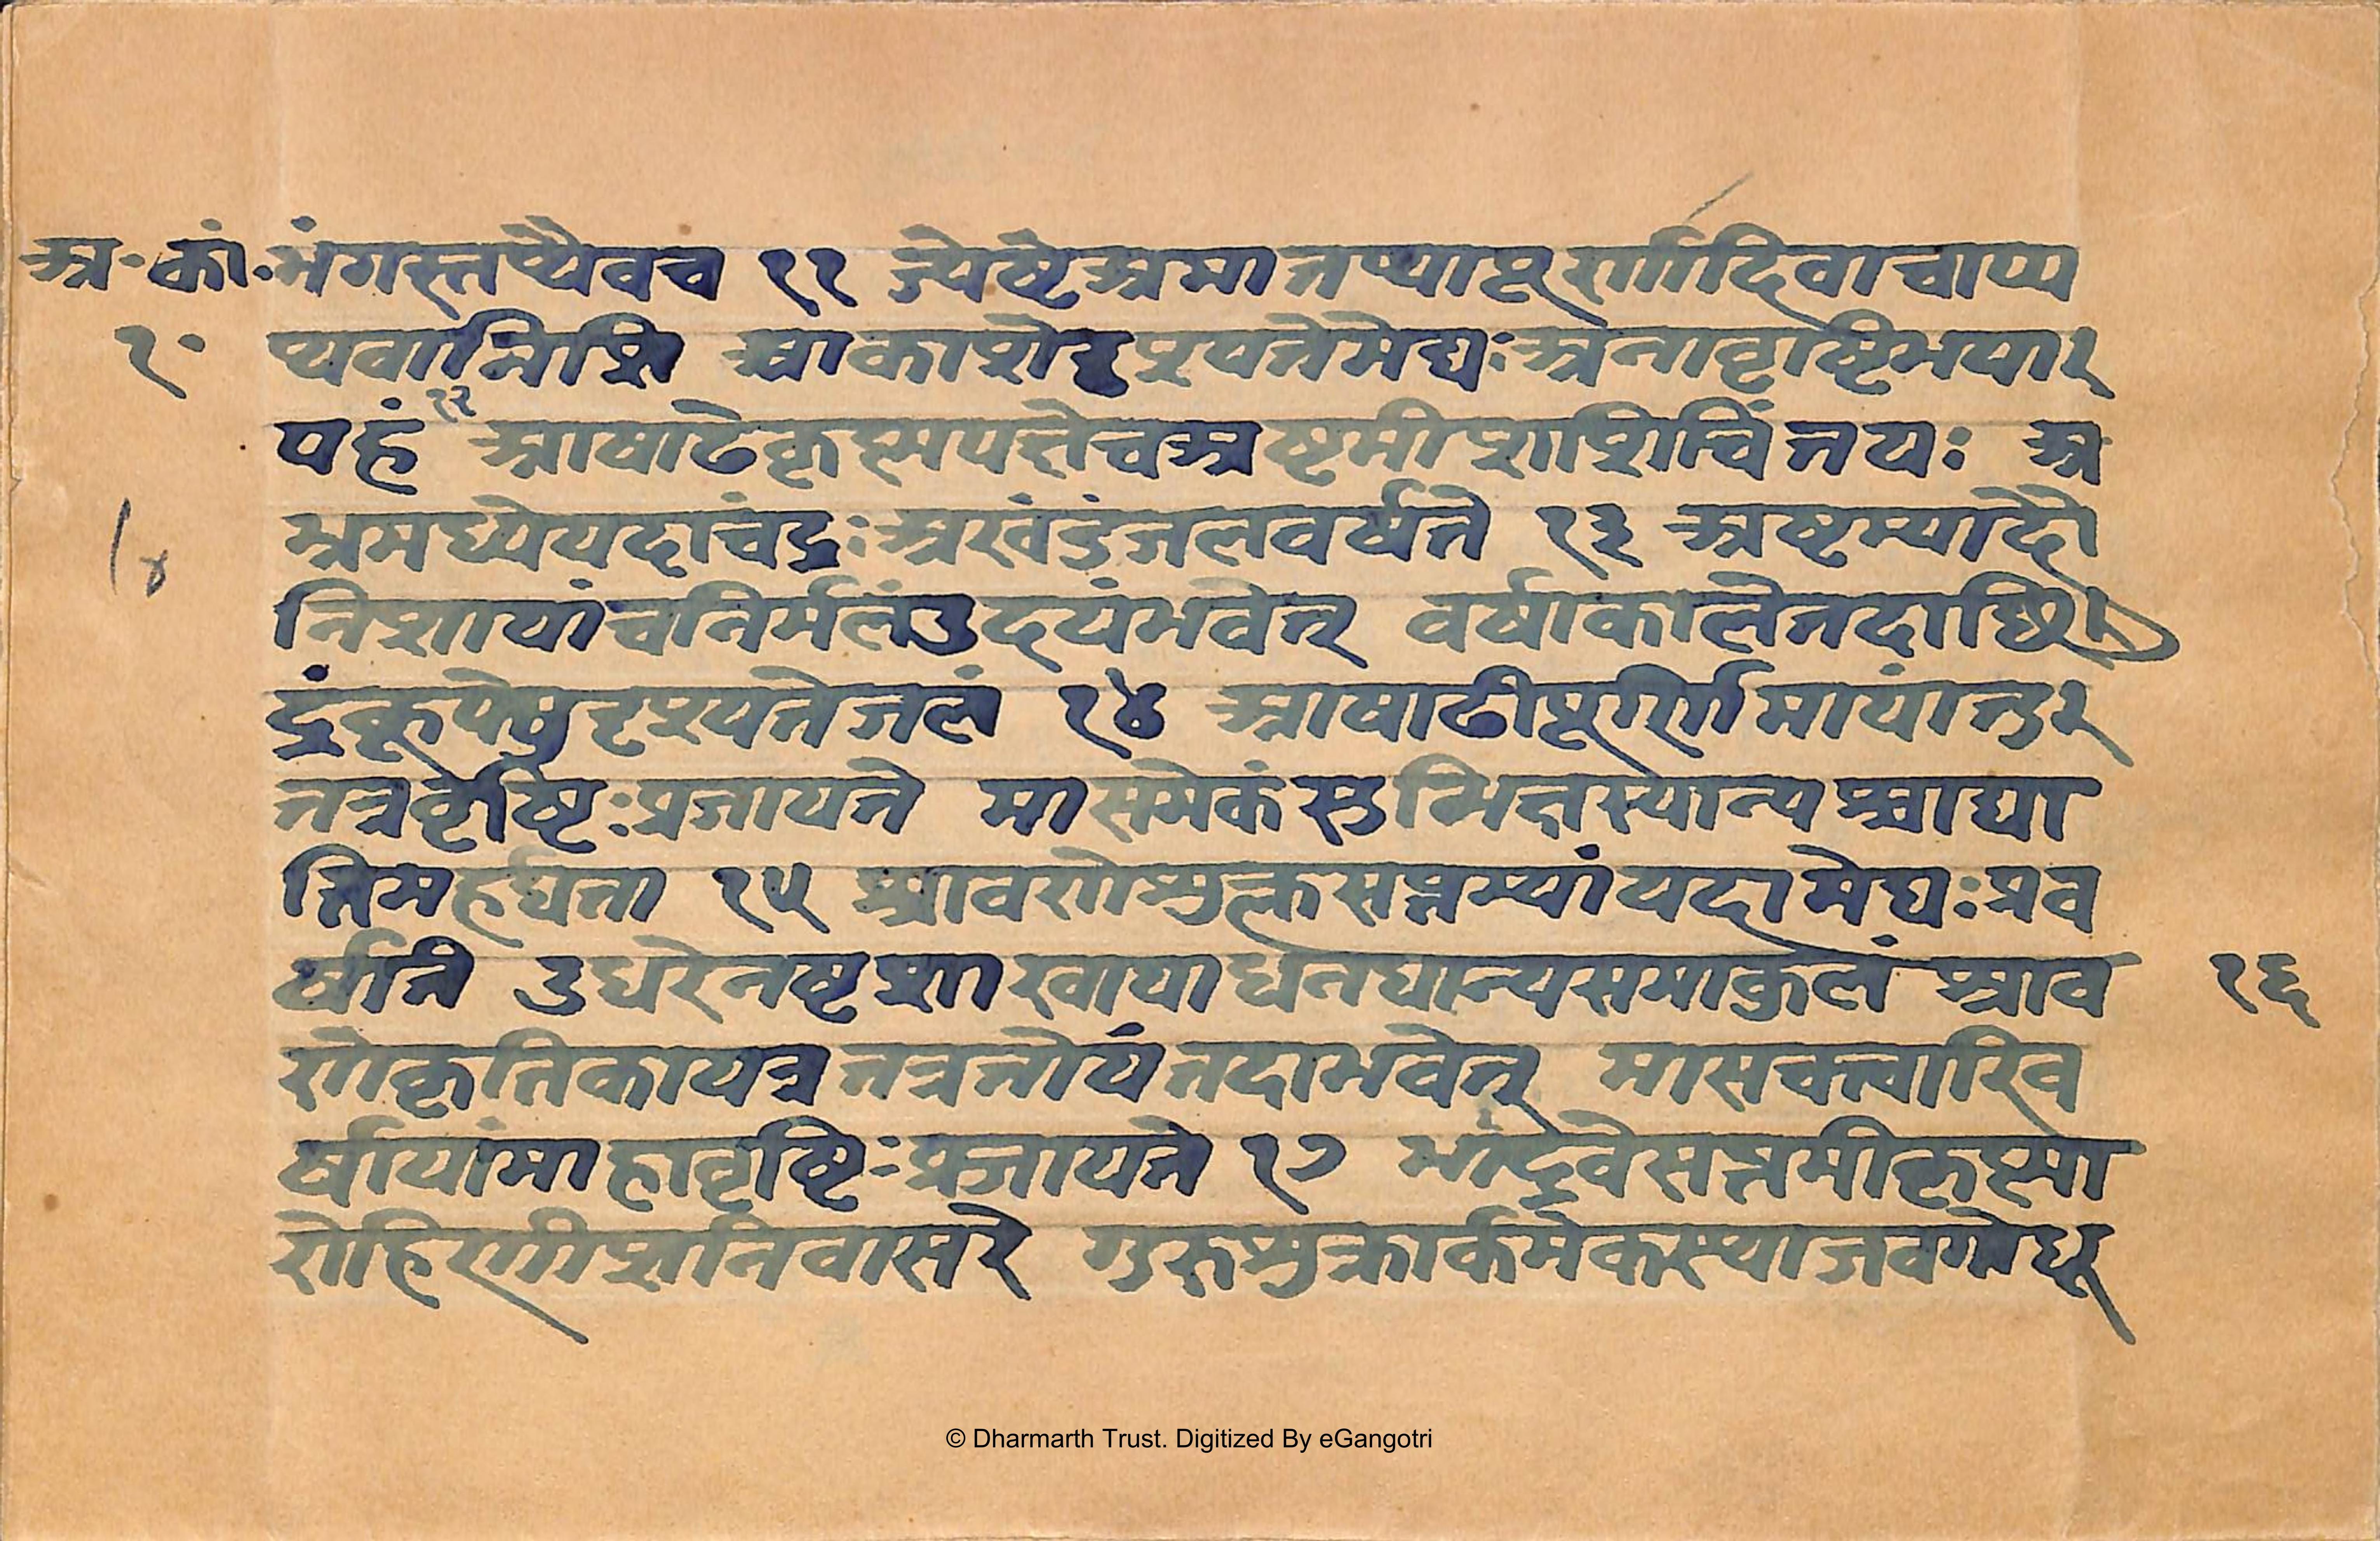 अ॰ कां॰ भंगस्तथैवच ११ ज्येष्टेअमातथापूर्णादिवाचाप्य
१॰ थवानिशि आकाशेदृश्यतेमेघः अनावृष्टिभयार
यहं १२ आषाढेकृष्मपक्षेचअष्टमीशाशिचिंतयः अ
भ्रमध्येयदाचंद्रः अखंडंजलवर्षते १३ अष्टम्यादौ
निशायांचनिर्मलंउदयंभवेत् वर्षाकालेतदाछि
द्रंकूपेषुदृश्यतेजलं १४ आषाढीपूर्णिमायांतुर
तत्रवृष्टिः प्रजायते मासमेकंसुभिक्षस्यान्यश्चाद्या
त्तिमहर्घता १५ श्रावणेशुक्लसप्तम्यांयदामेघः प्रव
र्षति उद्धरेनष्टशाखाया धनधान्यसमाकुलं श्राव १६
णेकृतिकायत्र तत्रतोयंतदाभवेत् मासचत्वारिव
र्षायांमाहावृष्टिः प्रजायते १७ भाद्रवेसप्तमीकृष्मा
रोहिणीशनिवासरे गुरुशुक्रार्कमेकस्याजवगोधू
© Dharmarth Trust. Digitized By eGangotri